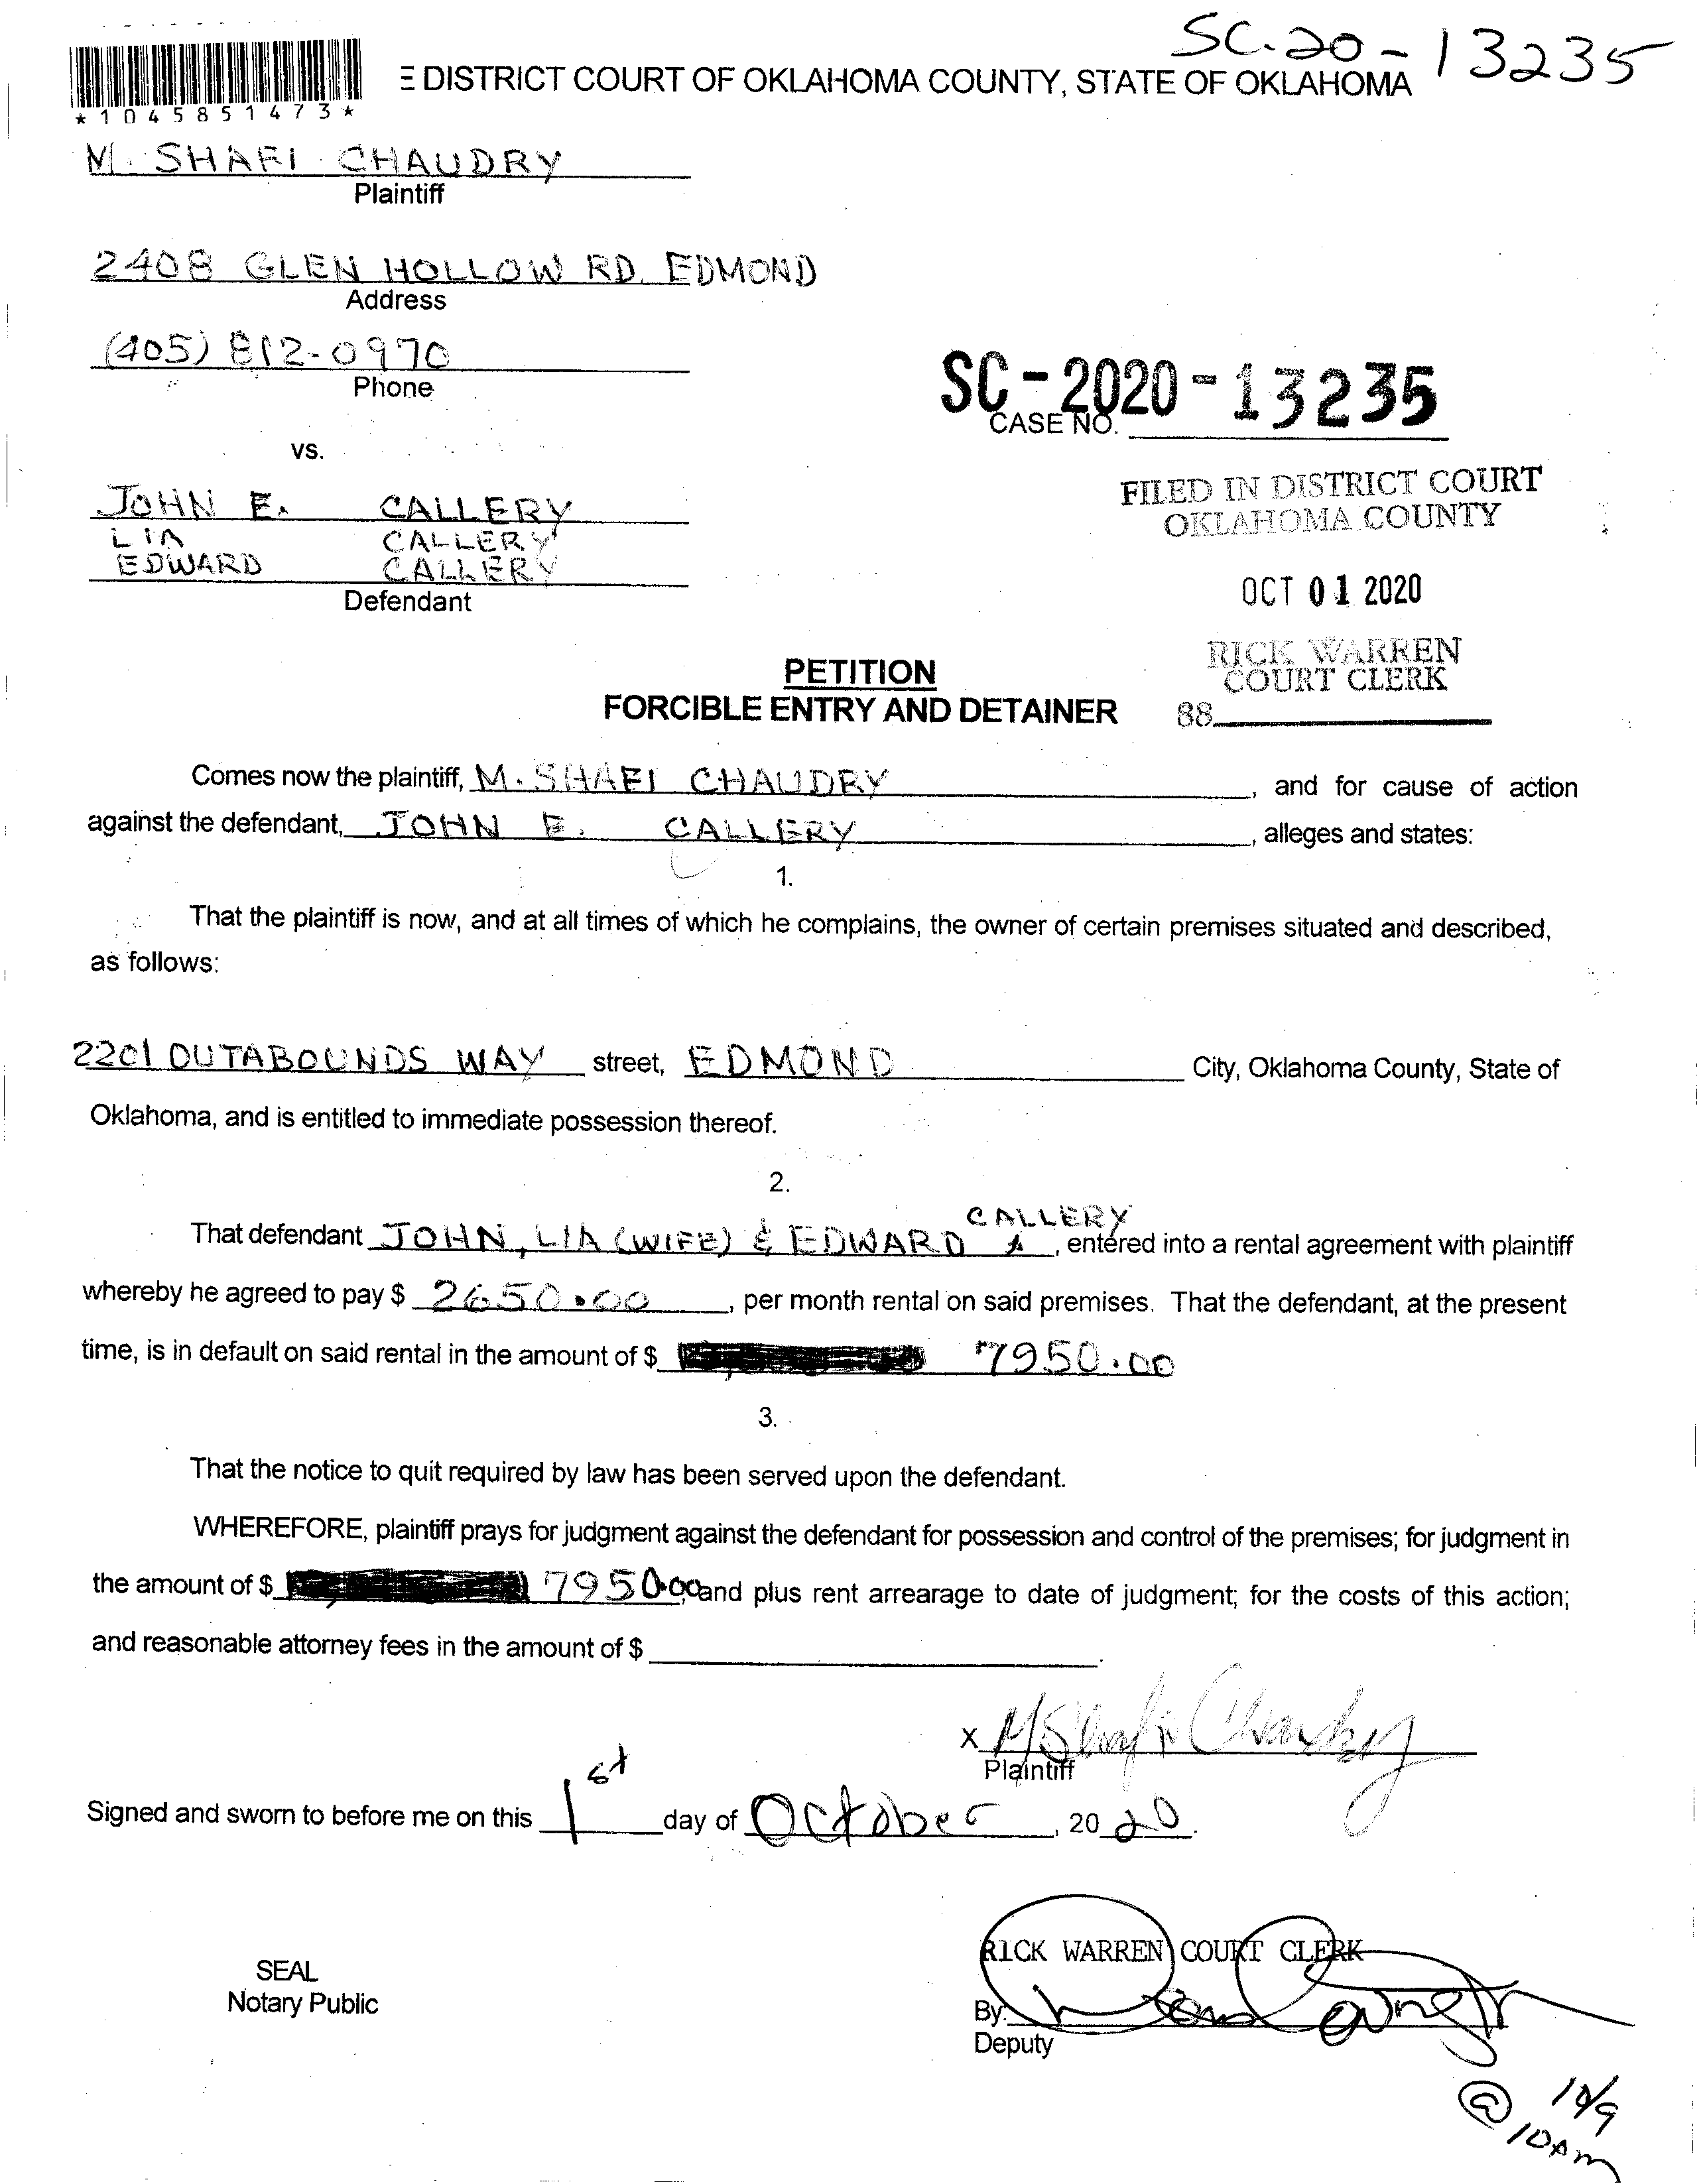 SC-20-13235
E DISTRICT COURT OF OKLAHOMA COUNTY, STATE OF OKLAHOMA
*1045851473*
M. SHAFI CHAUDRY
Plaintiff
2408 GLEN HOLLOW RD. EDMOND
Address
(405) 812-0970
Phone
SC-2020-13235
CASE NO.
vs.
JOHN E. CALLERY
LIA CALLERY
EDWARD CALLERY
Defendant
FILED IN DISTRICT COURT
OKLAHOMA COUNTY
OCT 01 2020
RICK WARREN
COURT CLERK
88
PETITION
FORCIBLE ENTRY AND DETAINER
Comes now the plaintiff, M. SHAFI CHAUDRY, and for cause of action
against the defendant, JOHN E. CALLERY, alleges and states:
1.
That the plaintiff is now, and at all times of which he complains, the owner of certain premises situated and described,
as follows:
2201 OUTABOUNDS WAY street, EDMOND City, Oklahoma County, State of
Oklahoma, and is entitled to immediate possession thereof.
2.
That defendant JOHN, LIA (WIFE) & EDWARD CALLERY, entered into a rental agreement with plaintiff
whereby he agreed to pay $ 2650.00, per month rental on said premises. That the defendant, at the present
time, is in default on said rental in the amount of $ 7950.00
3.
That the notice to quit required by law has been served upon the defendant.
WHEREFORE, plaintiff prays for judgment against the defendant for possession and control of the premises; for judgment in
the amount of $ 7950.00, and plus rent arrearage to date of judgment; for the costs of this action;
and reasonable attorney fees in the amount of $ .
X M Shafi Chaudry
Plaintiff
Signed and sworn to before me on this 1st day of October, 2020.
SEAL
Notary Public
RICK WARREN COURT CLERK
By:
Deputy
10/9
@ 10am